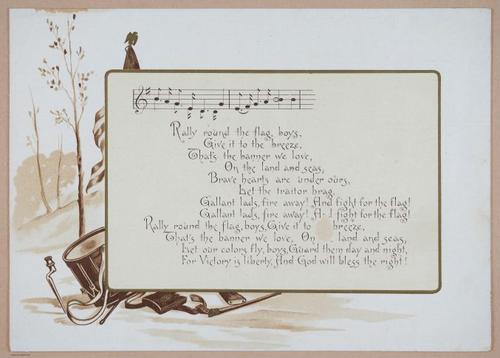 Rally round the flag, boys,
Give it to the breeze,
That's the banner we love,
On the land and seas,
Brave hearts are under ours,
Let the traitor brag,
Gallant lads, fire away! And fight for the flag!
Gallant lads, fire away! A d fight for the flag!
Rally round the flag, boys, Give it to breeze,
That's the banner we love, On land and seas,
Let our colors fly, boys, Guard them day and night,
For Victory is liberty, And God will bless the right!